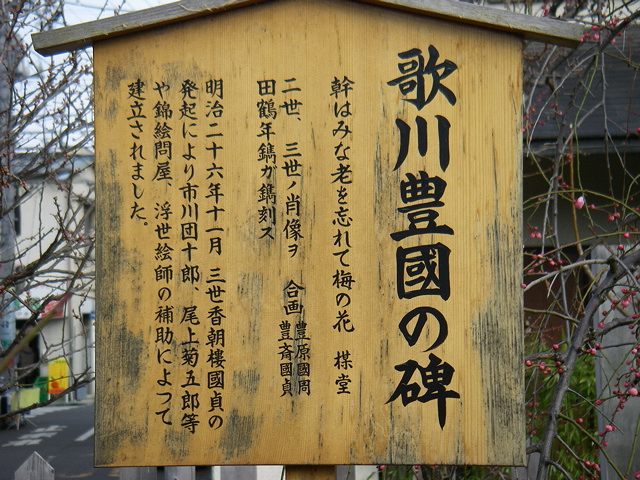 歌川豊國の碑
幹はみな老を忘れて梅の花 楳堂
二世、三世ノ肖像ヲ 合画 豊原國周
豊斎國貞
田鶴年鐫ガ鐫刻ス
明治二十六年十一月 三世香朝樓國貞の
発起により市川団十郎 尾上菊五郎等
や錦絵問屋、浮世絵師の補助によって
建立されました。